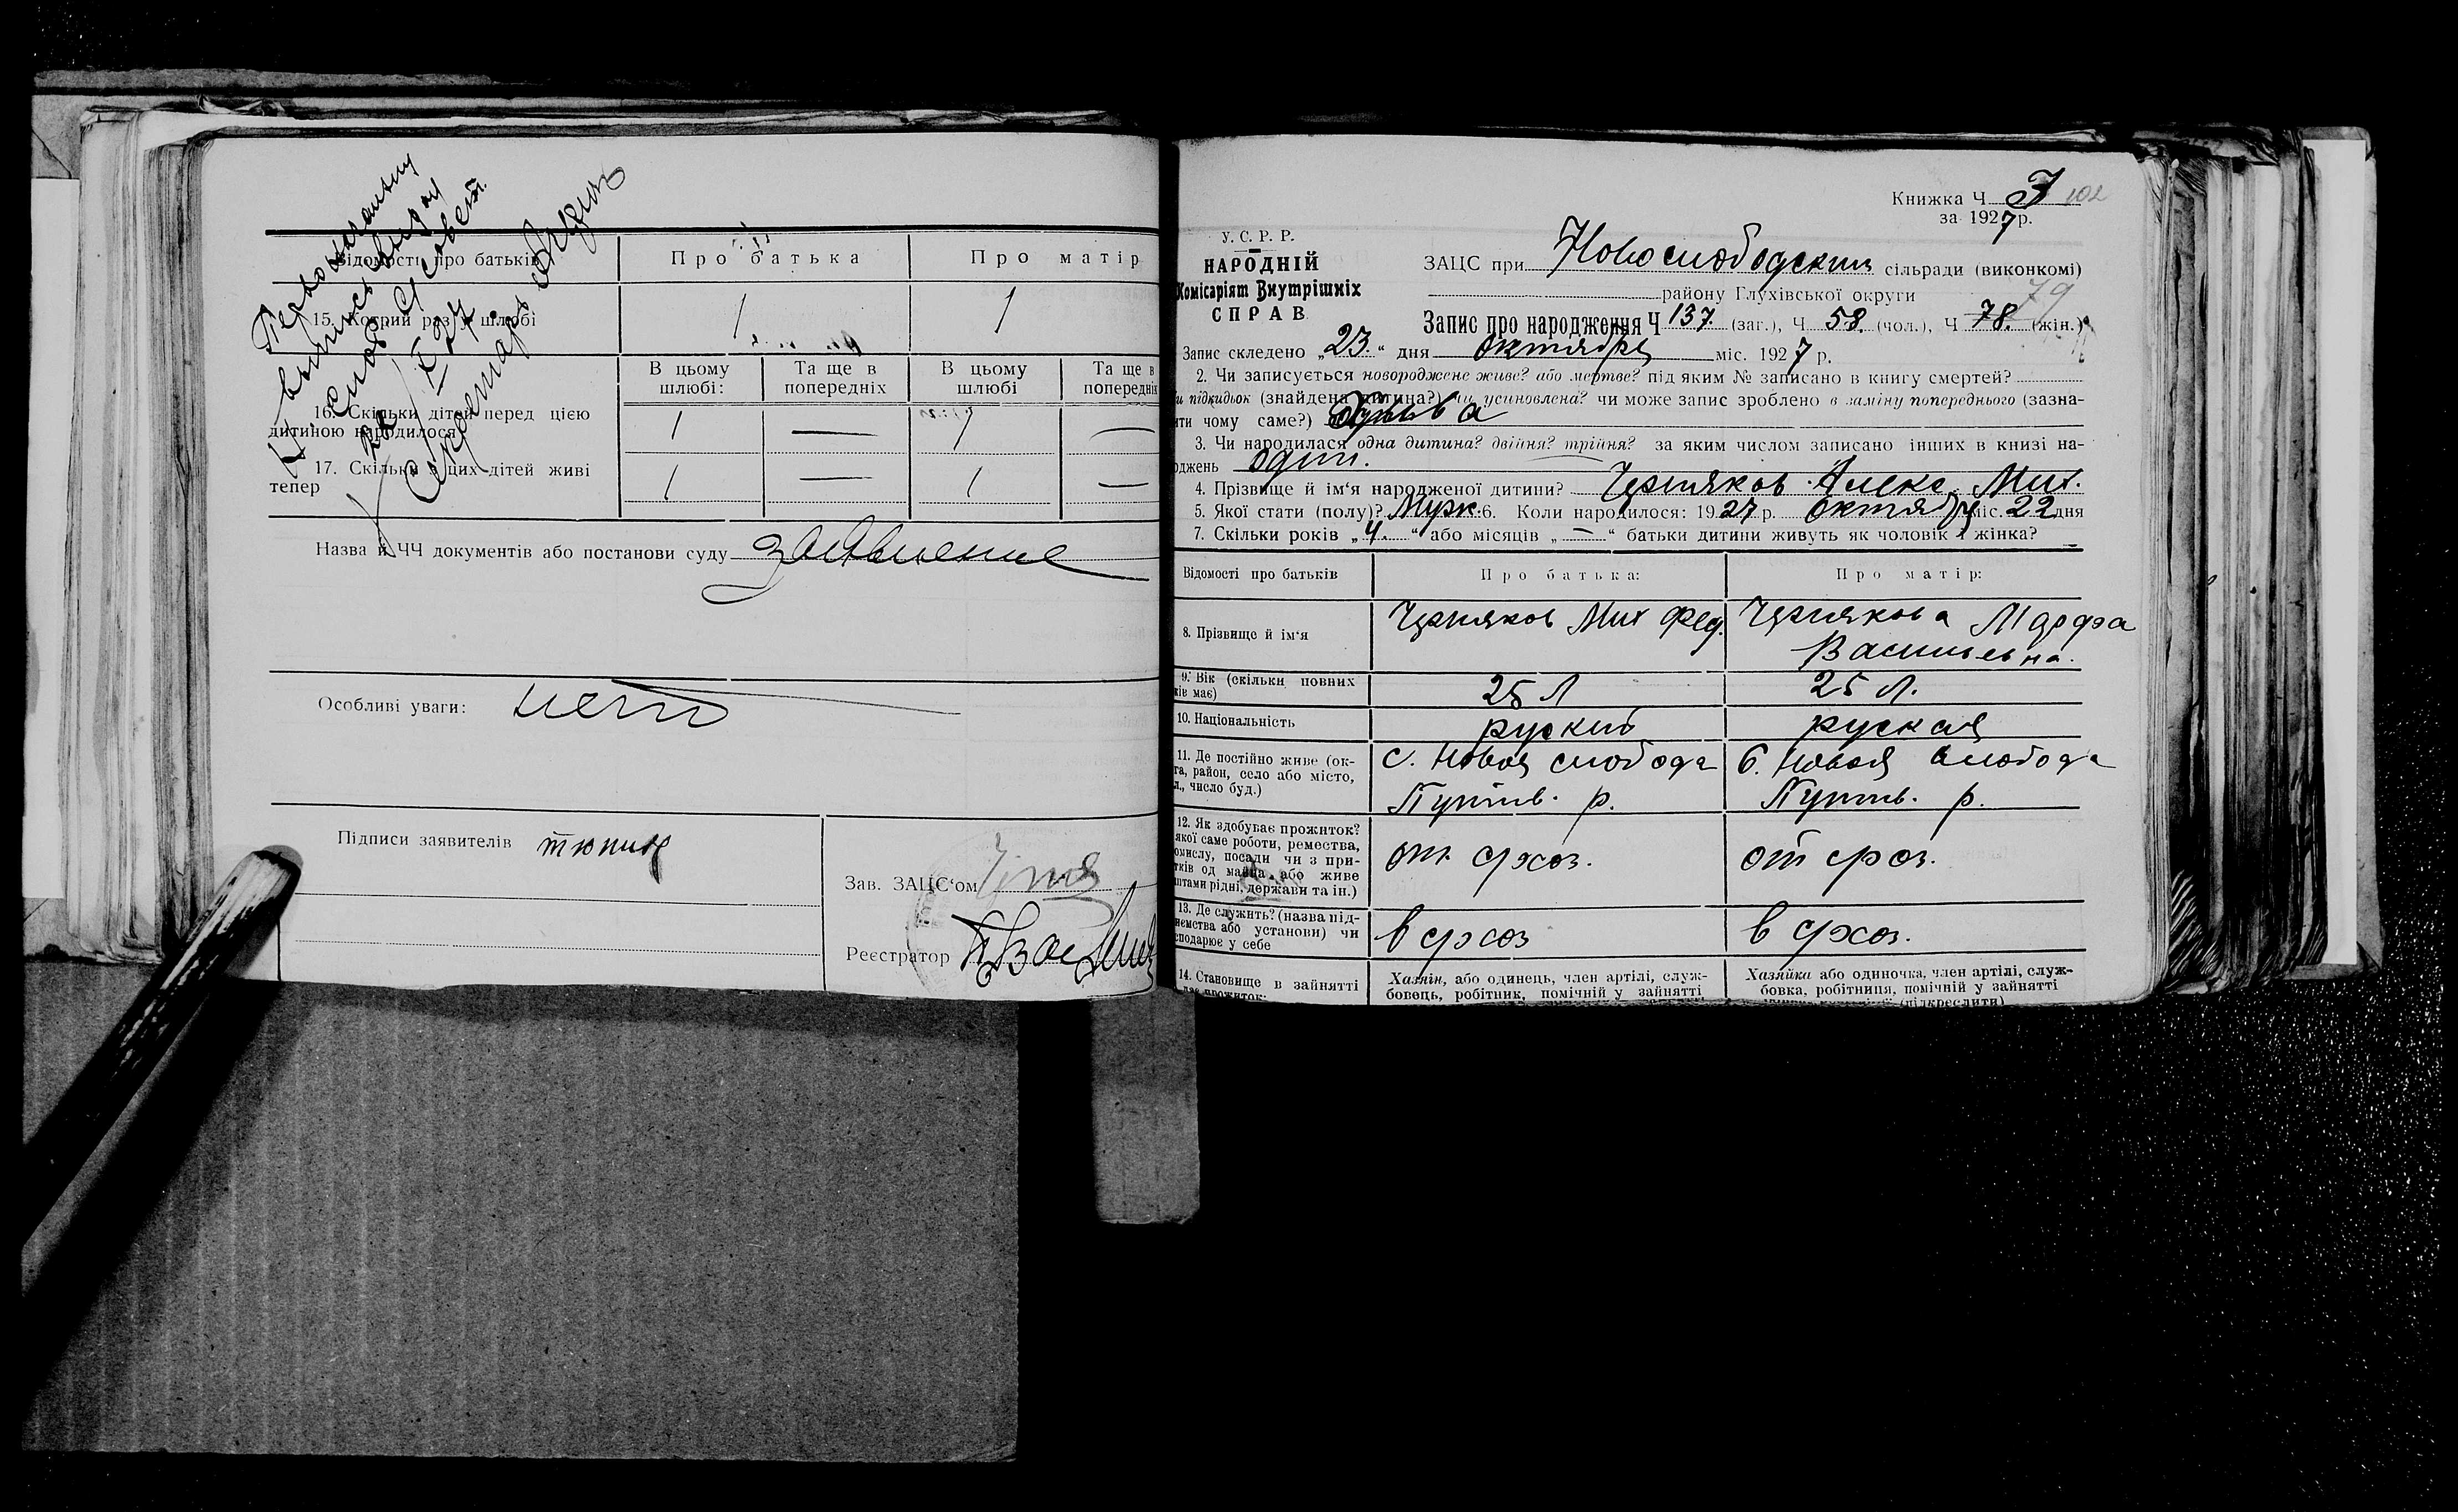 Відомости про батьків
Про батька
Про матір
15. Котрий раз у шлюбі
1
1
В цьому шлюбі:
Та ще в попередніх
В цьому шлюбі
Та ще в попередніх
16. Скільки дітей перед цією
дитиною народилося
1 — 1 —
17. Скільки з цих дітей живі
тепер
1 — 1 —
Назва й ЧЧ документів або постанови суду заявление
Особливі уваги: нет
Підписи заявителів
Зав. ЗАЦС'ом
Реєстратор
Книжка Ч 102
за 1927 р.
У. С. Р. Р.
НАРОДНІЙ
Комісаріят Внутрішніх
СПРАВ
ЗАЦС при Новослободским сільради (виконкомі)
району Глухівської округи
79
Запис про народження Ч 137. (заг.), Ч 58. (чол.), Ч 78. (жін.)
Запис складено „23.“ дня октября міс. 1927 р.
2. Чи записується новороджене живе? або мертве? під яким № записано в книгу смертей?
и підкидьок (знайдена дитина?) чи усиновлена? чи може запис зроблено в заміну попереднього (зазна-
ити чому саме?)
3. Чи народилася одна дитина? двійня? трійня? за яким числом записано інших в книзі на-
оджень один.
4. Прізвище й ім'я народженої дитини? Черняков Алекс. Мих.
5. Якої стати (полу)? Муж. 6. Коли народилося: 1927 р. октября міс. 22 дня
7. Скільки років „4.“ або місяців „—“ батьки дитини живуть як чоловік і жінка?
Відомості про батьків
Про батька:
Про матір:
8. Прізвище й ім'я
Черняков Мих Фед.
Чернякова Марфа
Васильевна.
9. Вік (скільки повних
ків має)
25 л
25 л.
10. Національність
руский
руская
11. Де постійно живе (ок-
га, район, село або місто,
л., число буд.)
с. Новая слобода
Путив. р.
с. Новая слобода
Путив. р.
12. Як здобуває прожиток?
якої саме роботи, ремества,
омислу, посади чи з при-
тків од майна, або живе
штами рідні, держави та ін.)
от с/хоз.
от с/хоз.
13. Де служить? (назва під-
иємства або установи) чи
сподарює у себе
в с/хоз
в с/хоз.
14. Становище в зайнятті
Хазяїн, або одинець, член артілі, служ-
бовець, робітник, помічній у зайнятті
Хазяйка або одиночка, член артілі, служ-
бовка, робітниця, помічній у зайнятті